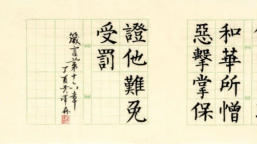 和華所憎
惡擊掌保
證他難免
受罰
箴言第十六章
丁酉